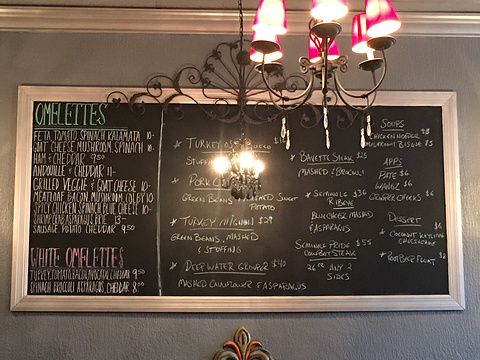 OMELETTES
FETA, TOMATO, SPINACH, KALAMATA 10-
GOAT CHEESE, MUSHROOM, SPINACH 10-
HAM & CHEDDAR 9.50
ANDOUILLE & CHEDDAR 11-
GRILLED VEGGIE & GOAT CHEESE 10-
MEATLOAF, BACON, MUSHROOM, COLBY 10
SPICY CHICKEN, SPINACH, BLUE CHEESE 10-
ASPARAGUS, BRIE 13-
SAUSAGE POTATO CHEDDAR 9.50
WHITE OMELETTES
TURKEY, TOMATO, BACON, AVOCADO, CHEDDAR 9.50
SPINACH BROCCOLI ASPARAGUS, CHEDDAR 8.50
* TURKEY
STUFFING
* PORK
GREEN BEANS, MASHED SWEET
POTATO
* TURKEY MIGNON $29
GREEN BEANS, MASHED
& STUFFING
* DEEP WATER GROUPER $40
MASHED CAULIFLOWER & ASPARAGUS
* BAVETTE STEAK $25
MASHED & BROCCOLI
* SEMINOLE $36
RIBEYE
BLUE CHEESE MASHED
& ASPARAGUS
SEMINOLE PRIDE $55
COWBOY STEAK
26oz ANY 2
SIDES
SOUPS
CHICKEN NOODLE $5
MUSHROOM BISQUE
APPS
PATE $6
WINGZ $6
$6
DESSERT
* COCONUT $6
CHEESECAKE
* ROOTBEER FLOAT